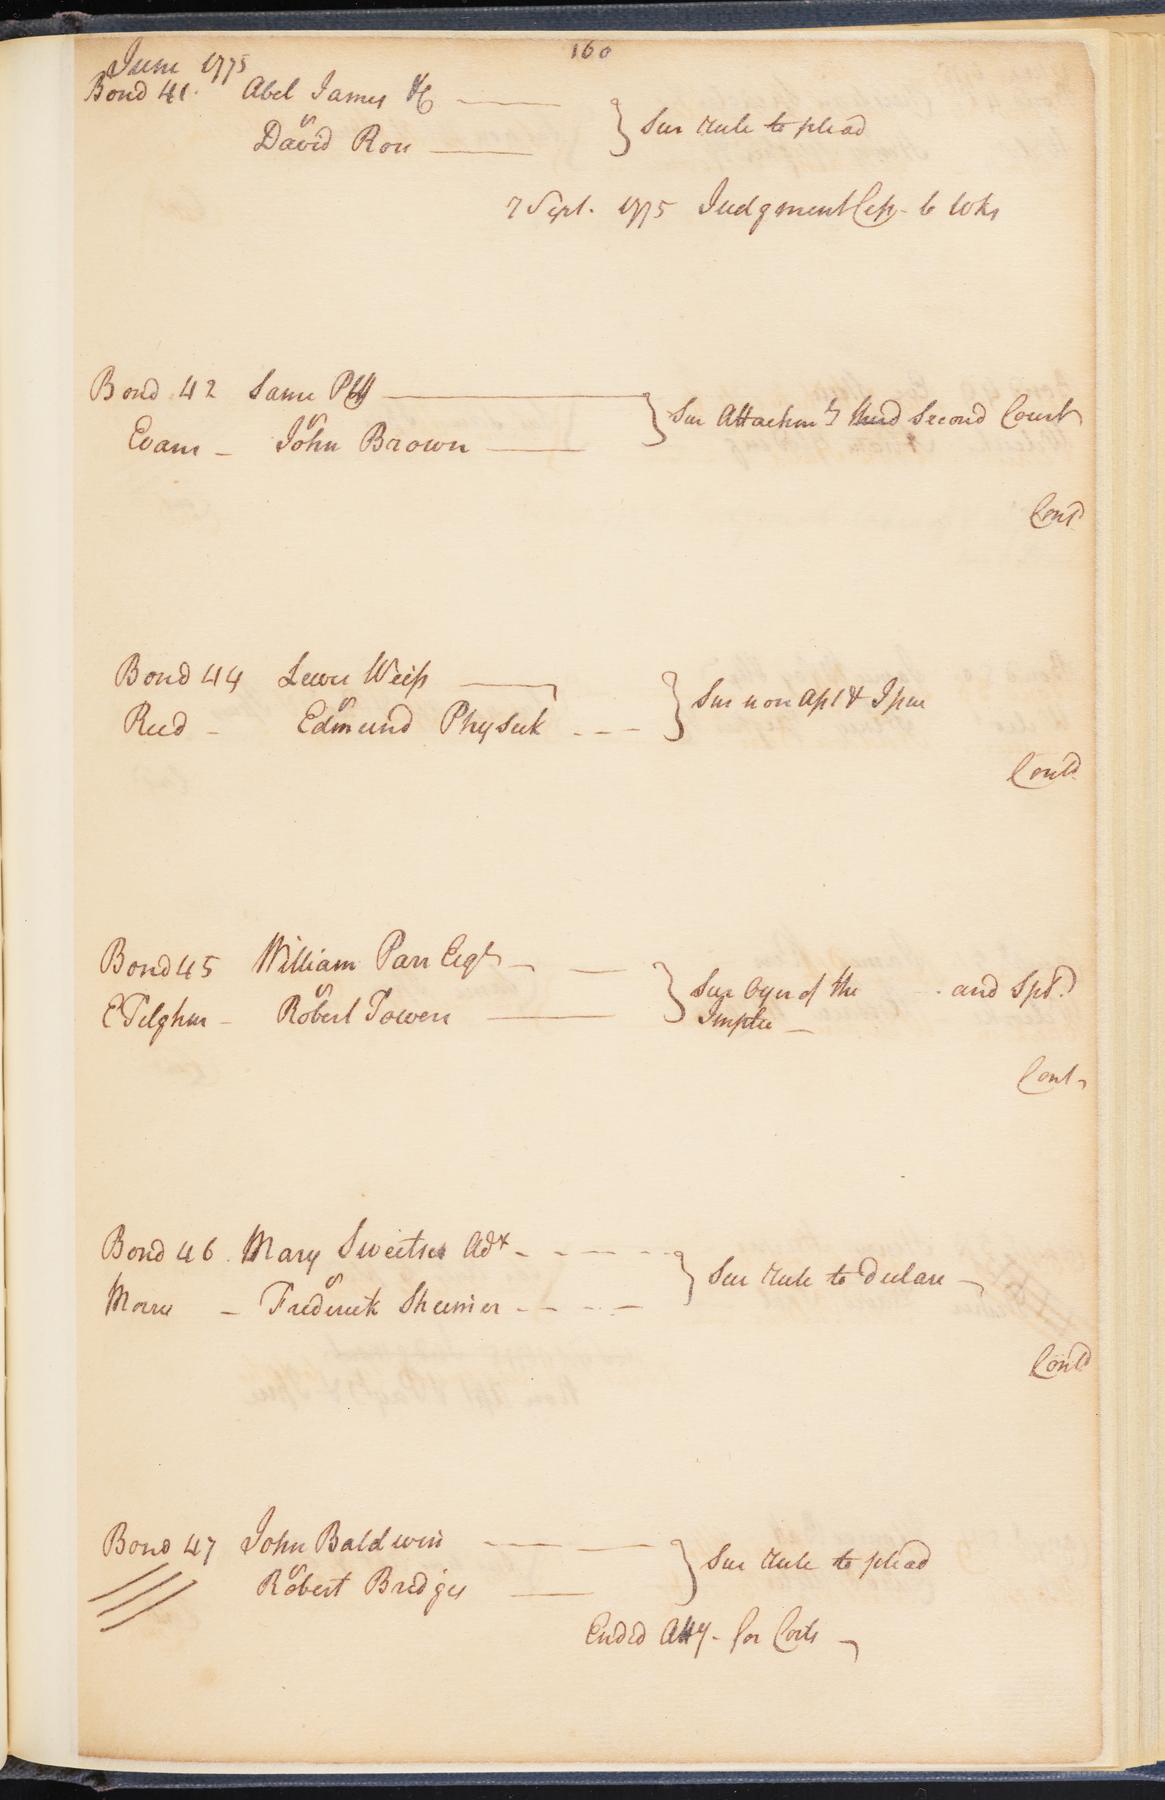 160
June 1775
Bond 41. Abel James &C
vs
David Ron
Sur rule to plead
7 Sept. 1775 Judgment 6 Wks
Bond 42 Same Plff
vs
Evans - John Brown
Sur Attachmt Second Court
Cont
Bond 44 Lewis Weiss
vs
Reed - Edmund Physick
Sur non Apl & Ipm
Contd
Bond 45 William Parr Esqr
vs
E Tilghm - Robert Towers
Sur Oyer of the and Spl.
Imple
Cont
Bond 46 Mary Sweitser Adx
vs
Morris - Frederick Sheimer
Sur rule to Declare
Contd
Bond 47 John Baldwin
vs
Robert Bridges
Sur rule to plead
Ended Atty. for Costs